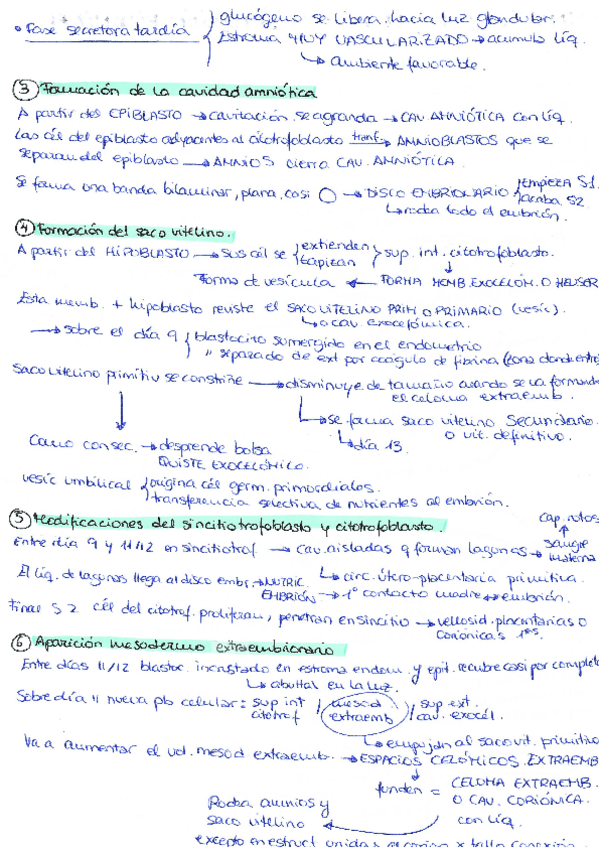 glucógeno se libera hacia luz glandular.
• Fase secretora tardía
Estroma MUY VASCULARIZADO → acumula líq.
↳ ambiente favorable.
③ Formación de la cavidad amniótica
A partir del EPIBLASTO → cavitación, se agranda → CAV. AMNIÓTICA con líq.
Las cél del epiblasto adyacentes al citotrofoblasto transf. → AMNIOBLASTOS que se
separan del epiblasto → AMNIOS cierra CAV. AMNIÓTICA.
Se forma una banda bilaminar, plana, casi ◯ → DISCO EMBRIONARIO
empieza S1.
acaba S2
↳ rodea todo el embrión.
④ Formación del saco vitelino.
A partir del HIPOBLASTO → sus cél se extienden tapizan sup. int. citotrofoblasto.
Forma de vesícula ← FORMA MEMB. EXOCELÓM. O HEUSER
Esta memb. + hipoblasto reviste el SACO VITELINO PRIM O PRIMARIO (vesíc).
↳ o cav. exocelómica.
→ sobre el día 9 blastocito sumergido en el endometrio
" separado de ext por coágulo de fibrina (zona donde entró)
Saco vitelino primitiv se constriñe → disminuye de tamaño cuando se va formando
el celoma extraemb.
↳ se forma saco vitelino secundario.
o vit. definitivo.
↳ día 13.
Como consec. → desprende bolsa
QUISTE EXOCELÓMICO.
vesíc umbilical origina cél germ. primordiales.
transferencia selectiva de nutrientes al embrión.
⑤ Modificaciones del sincitiotrofoblasto y citotrofoblasto.
cap. rotos
Entre día 9 y 11/12 en sincitiotrof → cav. aisladas q forman lagunas → sangre materna
↳ circ. útero-placentaria primitiva.
El líq. de lagunas llega al disco embr. → NUTRIC. EMBRIÓN → 1º contacto madre ↔ embrión.
Final S2 cél del citotrof. proliferan, penetran en sincitio → vellosid. placentarias o
coriónicas 1ªs.
⑥ Aparición mesodermo extraembrionario
Entre días 11/12 blastoc. incrustado en estroma endom. y epit. recubre casi por completo
↳ abulta en la luz.
Sobre día 11 nueva pb celular: sup int citotrof / mesod extraemb / sup ext. cav. exocél.
↳ empujan al saco vit. primitivo
Va a aumentar el vol. mesod extraemb. → ESPACIOS CELÓMICOS EXTRAEMB
funden = CELOMA EXTRAEMB.
O CAV. CORIÓNICA.
con líq.
Rodea amnios y
saco vitelino
excepto en estruct unidas al corion x tallo conexión